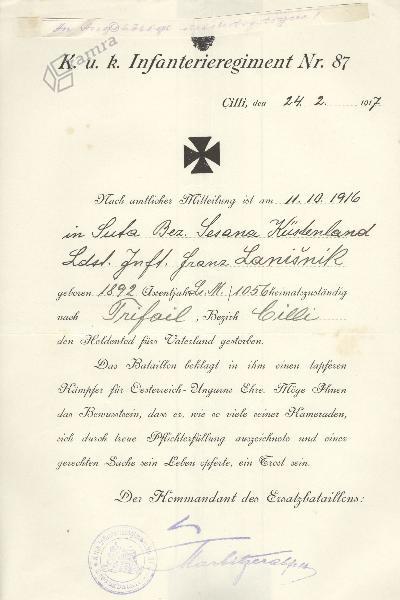 Kamra
K. u. k. Infanterieregiment Nr. 87
Cilli, den 24. 2. 1917
Nach amtlicher Mitteilung ist am 11. 10. 1916
in Suta Bez. Sesana Küstenland
Ldst. Inft. Franz Lanišnik
geboren 1892 Assentjahr L. M. / 1056 heimatzuständig
nach Trifail, Bezirk Cilli
den Heldentod für Vaterland gestorben.
Das Bataillon beklagt in ihm einen tapferen
Kämpfer für Oesterreich-Ungarns Ehre. Möge Ihnen
das Bewusstsein, dass er, wie so viele seiner Kameraden,
sich durch treue Pflichterfüllung auszeichnete und einer
gerechten Sache sein Leben opferte, ein Trost sein.
Der Kommandant des Ersatzbataillons: